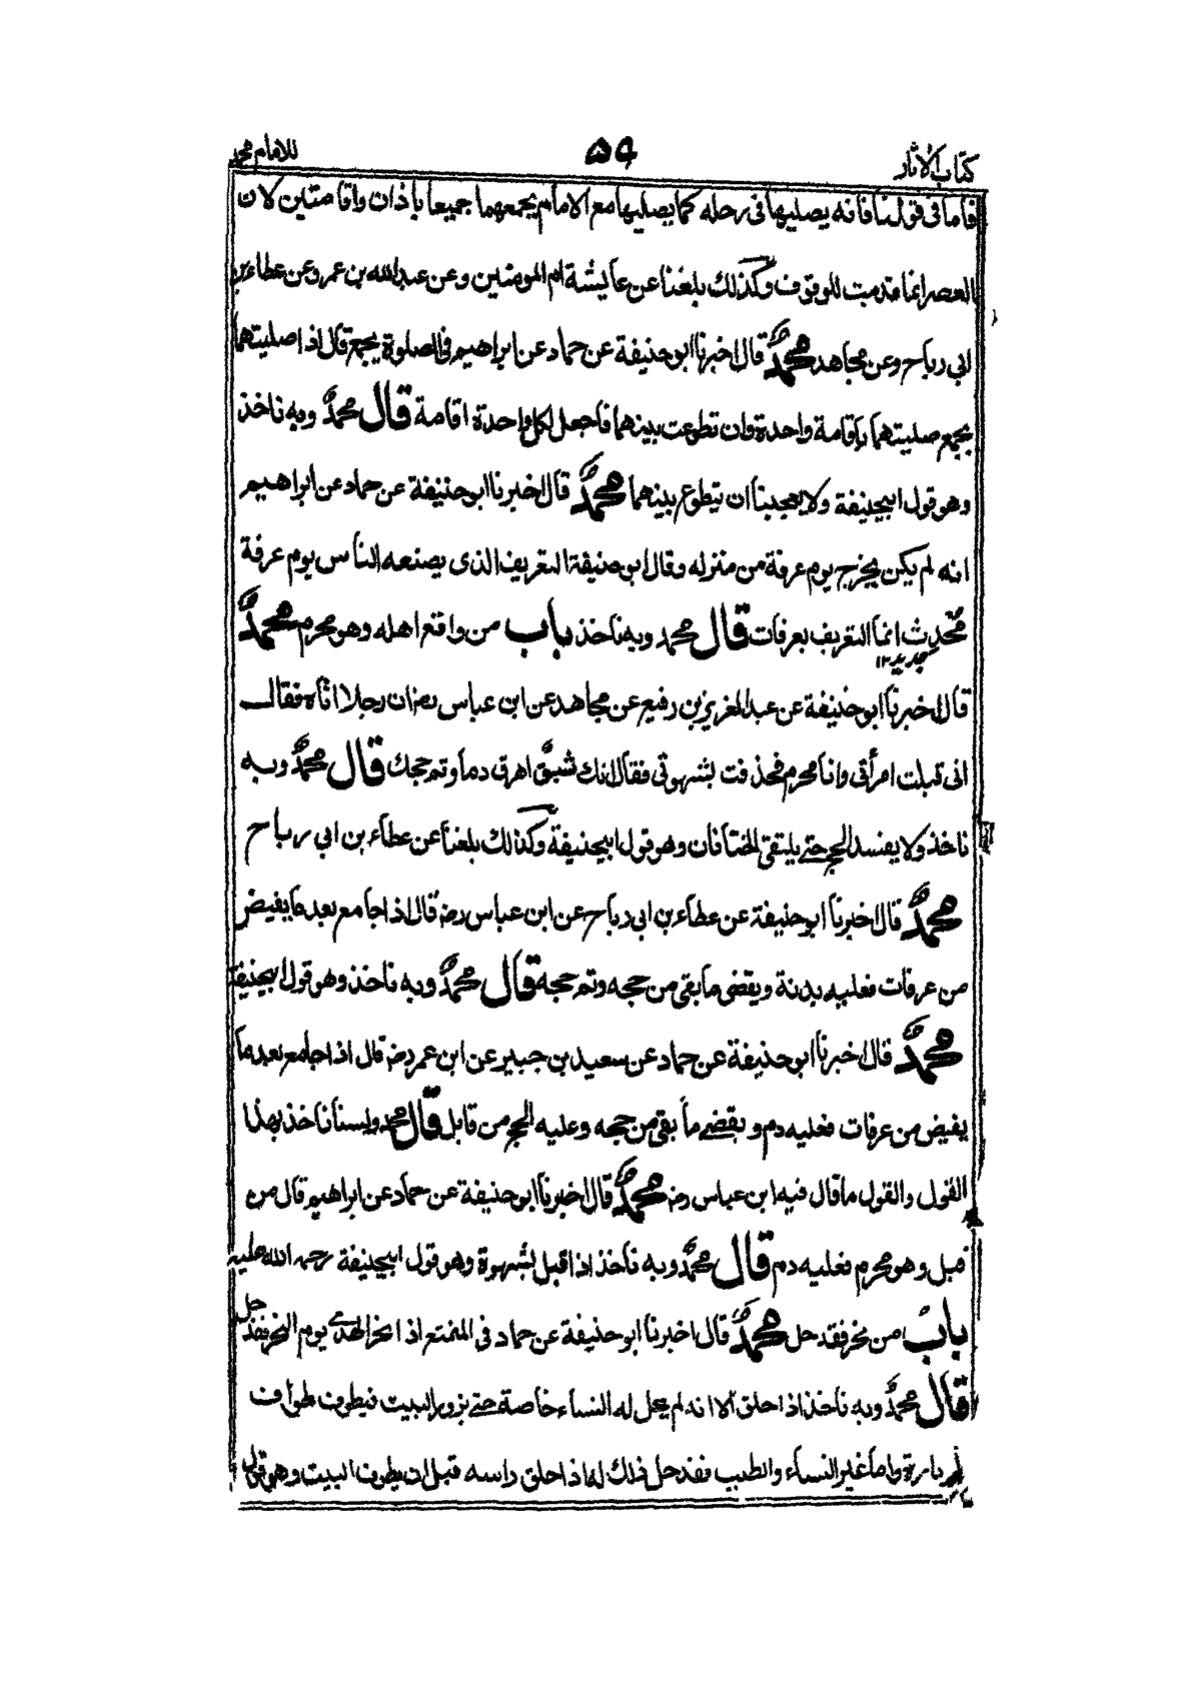 كتاب الآثار ٥٩ للامام محمد
فاما فى قولنا فانه يصليها فى رحله كما يصليها مع الامام يجمعهما جميعا باذان واقامتين لان
العصر انما قدمت للوقوف وكذلك بلغنا عن عايشة ام المومنين وعن عبدالله بن عمر وعن عطاء بن
ابي رباح وعن مجاهد محمد قال اخبرنا ابو حنيفة عن حماد عن ابراهيم فى الصلوة بجمع قال اذا صليتهما
بجمع صليتهما باقامة واحدة وان تطوعت بينهما فاجعل لكل واحدة اقامة قال محمد وبه ناخذ
وهو قول ابيحنيفة ولا يعجبنا ان يتطوع بينهما محمد قال اخبرنا ابو حنيفة عن حماد عن ابراهيم
انه لم يكن يخرج يوم عرفة من منزله وقال ابو حنيفة التعريف الذى يصنعه الناس يوم عرفة
محدث انما التعريف بعرفات قال محمد وبه ناخذ باب من واقع اهله وهو محرم محمد
جديد ١٢
قال اخبرنا ابو حنيفة عن عبد العزيز بن رفيع عن مجاهد عن ابن عباس رضـ ان رجلا اتاه فقال
انى قبلت امرأتى وانا محرم فحذفت بشهوتى فقال انك شبق اهرق دما وتم حجك قال محمد وبه
ناخذ ولا يفسد الحج حتے يلتقى الختانان وهو قول ابيحنيفة وكذلك بلغنا عن عطاء بن ابي رباح
محمد قال اخبرنا ابو حنيفة عن عطاء بن ابى رباح عن ابن عباس رضـ قال اذا جامع بعد ما يفيض
من عرفات فعليه بدنة ويقضى ما بقى من حجه وتم حجه قال محمد وبه ناخذ وهو قول ابيحنيفة
محمد قال اخبرنا ابو حنيفة عن حماد عن سعيد بن جبير عن ابن عمر رضـ قال اذا جامع بعد ما
يفيض من عرفات فعليه دم و يقضے ما بقى من حجه وعليه الحج من قابل قال محمد ولسنا ناخذ بهذا
القول والقول ما قال فيه ابن عباس رضـ محمد قال اخبرنا ابو حنيفة عن حماد عن ابراهيم قال من
قبل وهو محرم فعليه دم قال محمد وبه ناخذ اذا قبل بشهوة وهو قول ابيحنيفة رحمه الله عليه
باب من نحر فقد حل محمد قال اخبرنا ابو حنيفة عن حماد فى المتمتع اذا نحر الهدے يوم النحر فقد حل
قال محمد وبه ناخذ اذا حلق الا انه لم يحل له النساء خاصة حتے يزور البيت فيطوف طواف
الزيارة واما غير النساء والطيب فقد حل ذلك له اذا حلق راسه قبل ان يطوف البيت وهو قول